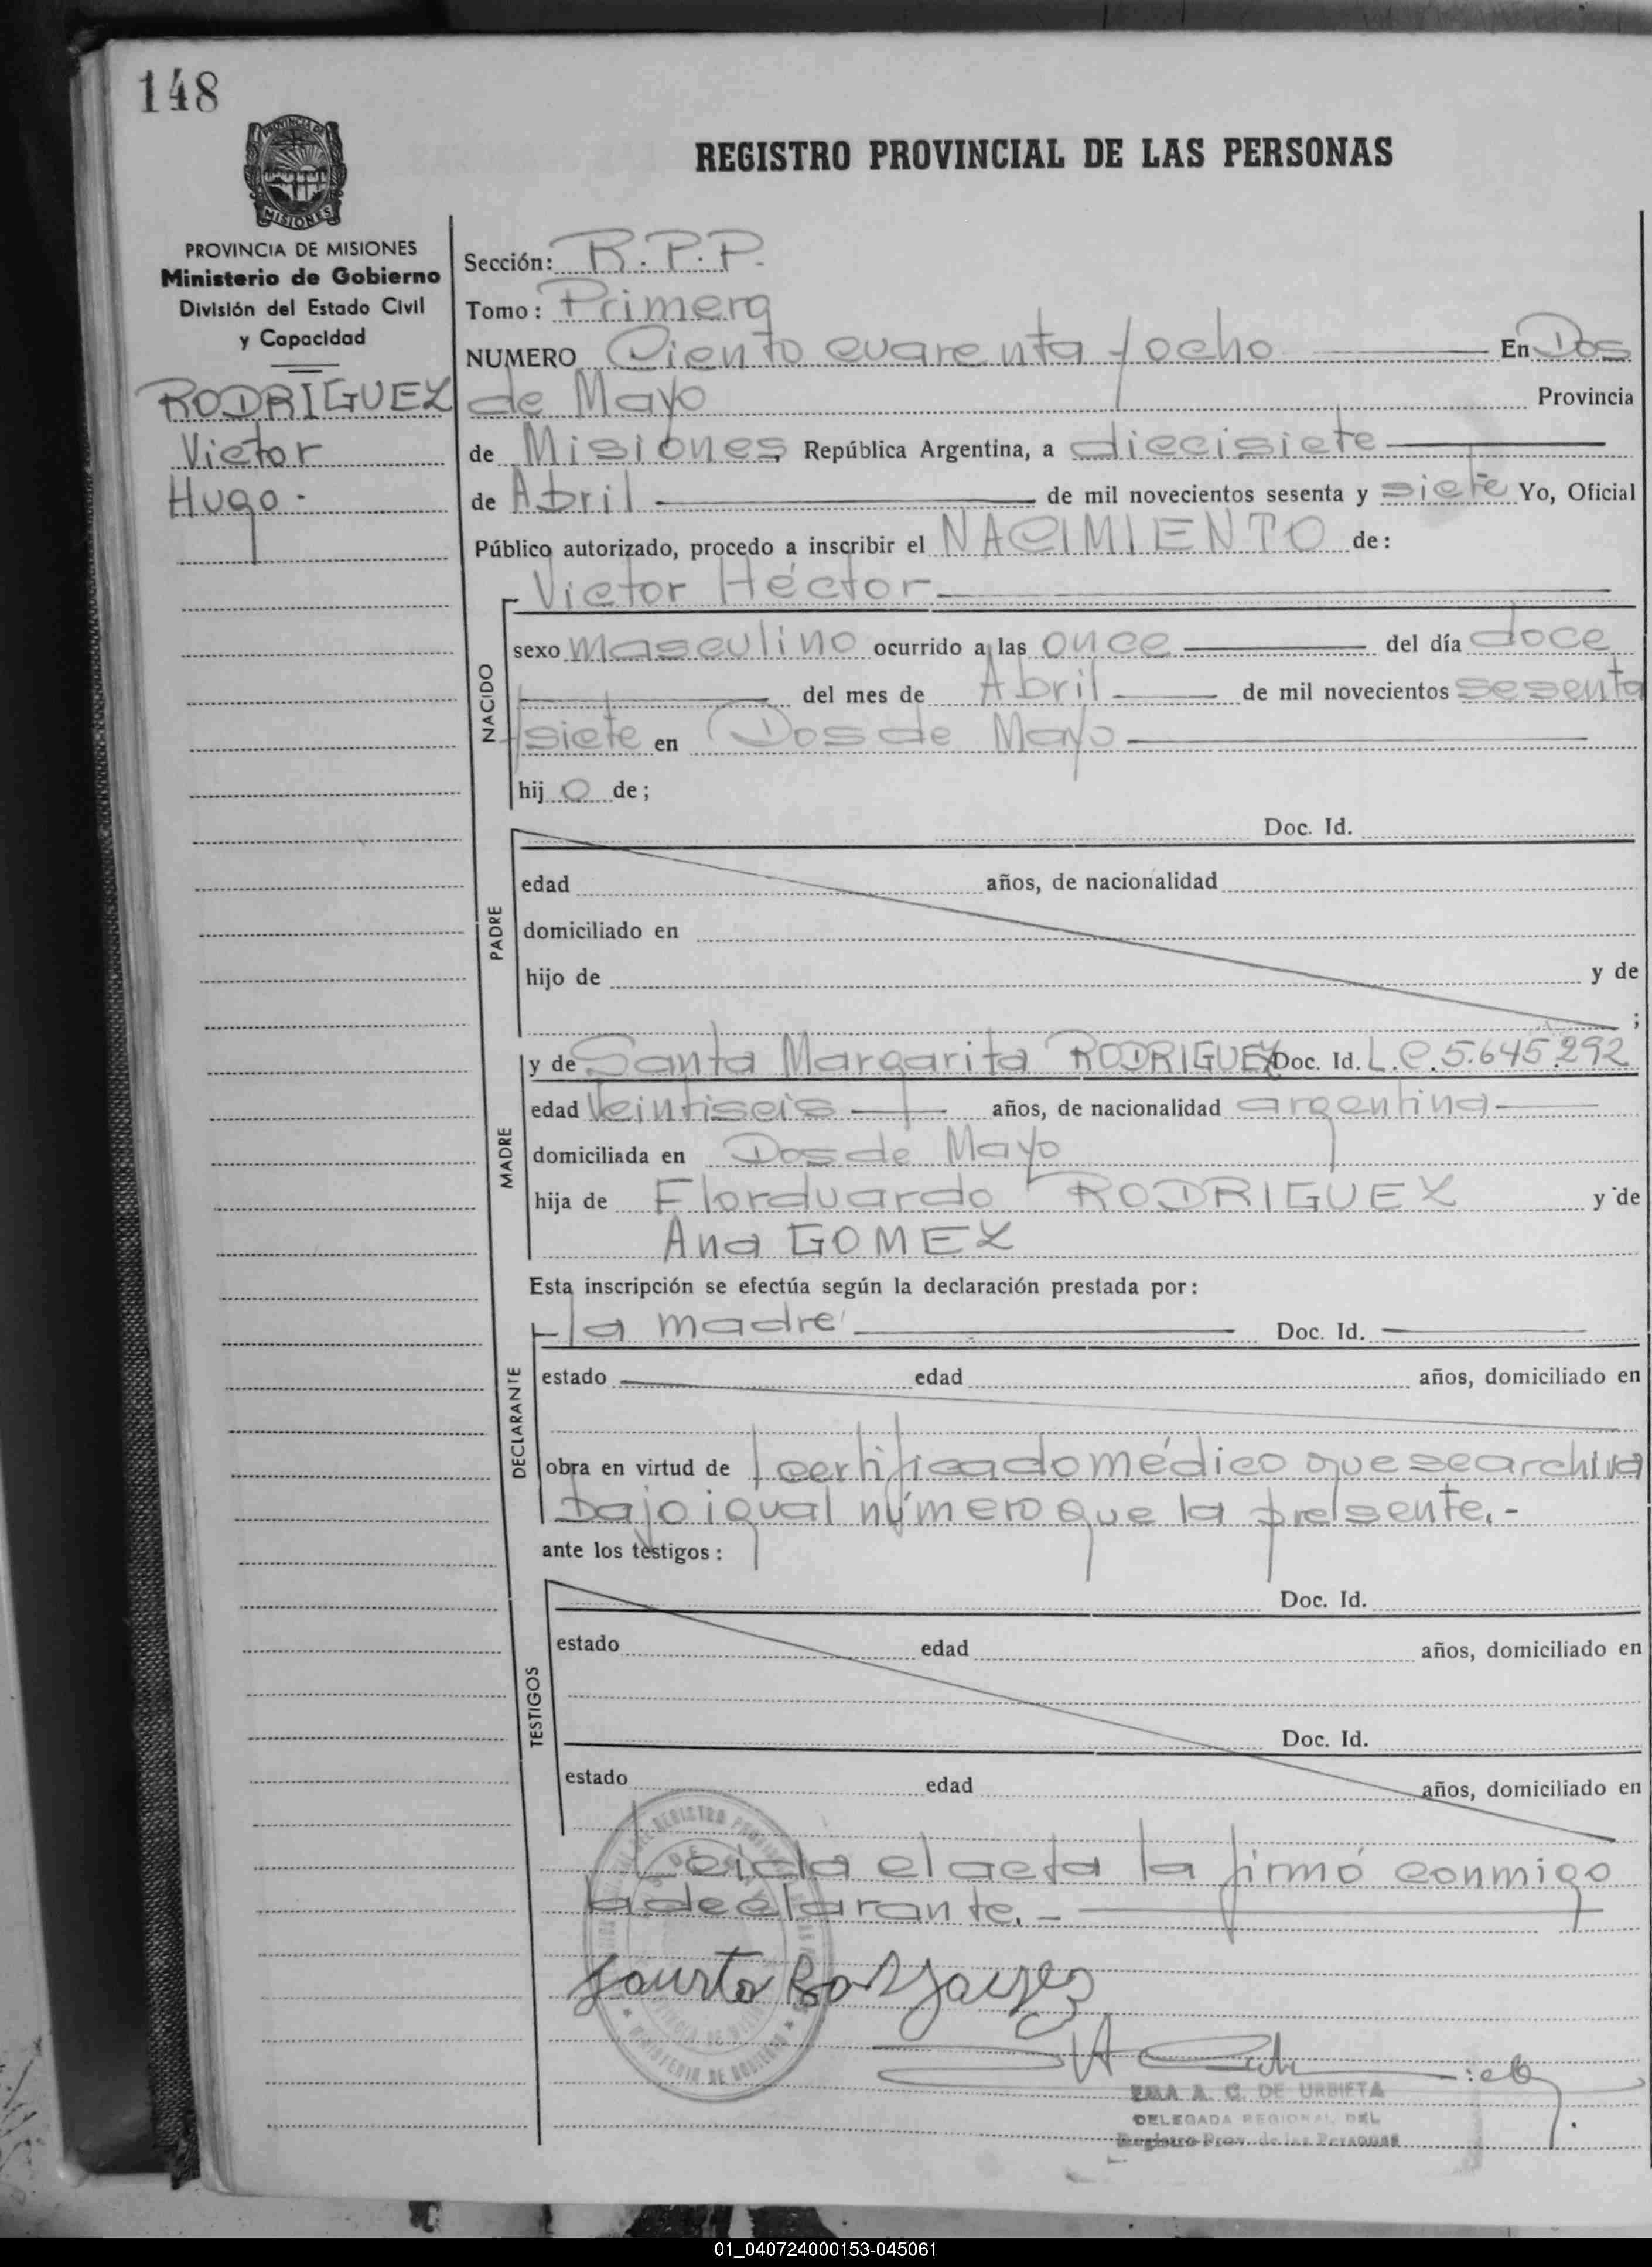 148
PROVINCIA DE
MISIONES
REGISTRO PROVINCIAL DE LAS PERSONAS
PROVINCIA DE MISIONES
Ministerio de Gobierno
División del Estado Civil
y Capacidad
RODRIGUEZ
Victor
Hugo.-
Sección: R.P.P.
Tomo: Primera
NUMERO Ciento cuarenta y ocho En Dos
de Mayo Provincia
de Misiones República Argentina, a diecisiete
de Abril de mil novecientos sesenta y siete Yo, Oficial
Público autorizado, procedo a inscribir el NACIMIENTO de:
Victor Héctor
NACIDO
sexo masculino ocurrido a las once del día doce
del mes de Abril de mil novecientos sesenta
y siete en Dos de Mayo
hij o de;
PADRE
Doc. Id.
edad años, de nacionalidad
domiciliado en
hijo de y de
;
MADRE
y de Santa Margarita RODRIGUEZ Doc. Id. L.C.5.645.292
edad Veintiseis años, de nacionalidad argentina
domiciliada en Dos de Mayo
hija de Florduardo RODRIGUEZ y de
Ana GOMEZ
Esta inscripción se efectúa según la declaración prestada por:
DECLARANTE
la madre Doc. Id.
estado edad años, domiciliado en
obra en virtud de certificado médico que se archiva
bajo igual número que la presente.-
ante los testigos:
TESTIGOS
Doc. Id.
estado edad años, domiciliado en
Doc. Id.
estado edad años, domiciliado en
Leida el acta la firmó conmigo
la declarante.-
MINISTERIO DE GOBIERNO
EMA A. C. DE URBIETA
DELEGADA REGIONAL DEL
Registro Prov. de las Personas
01_040724000153-045061